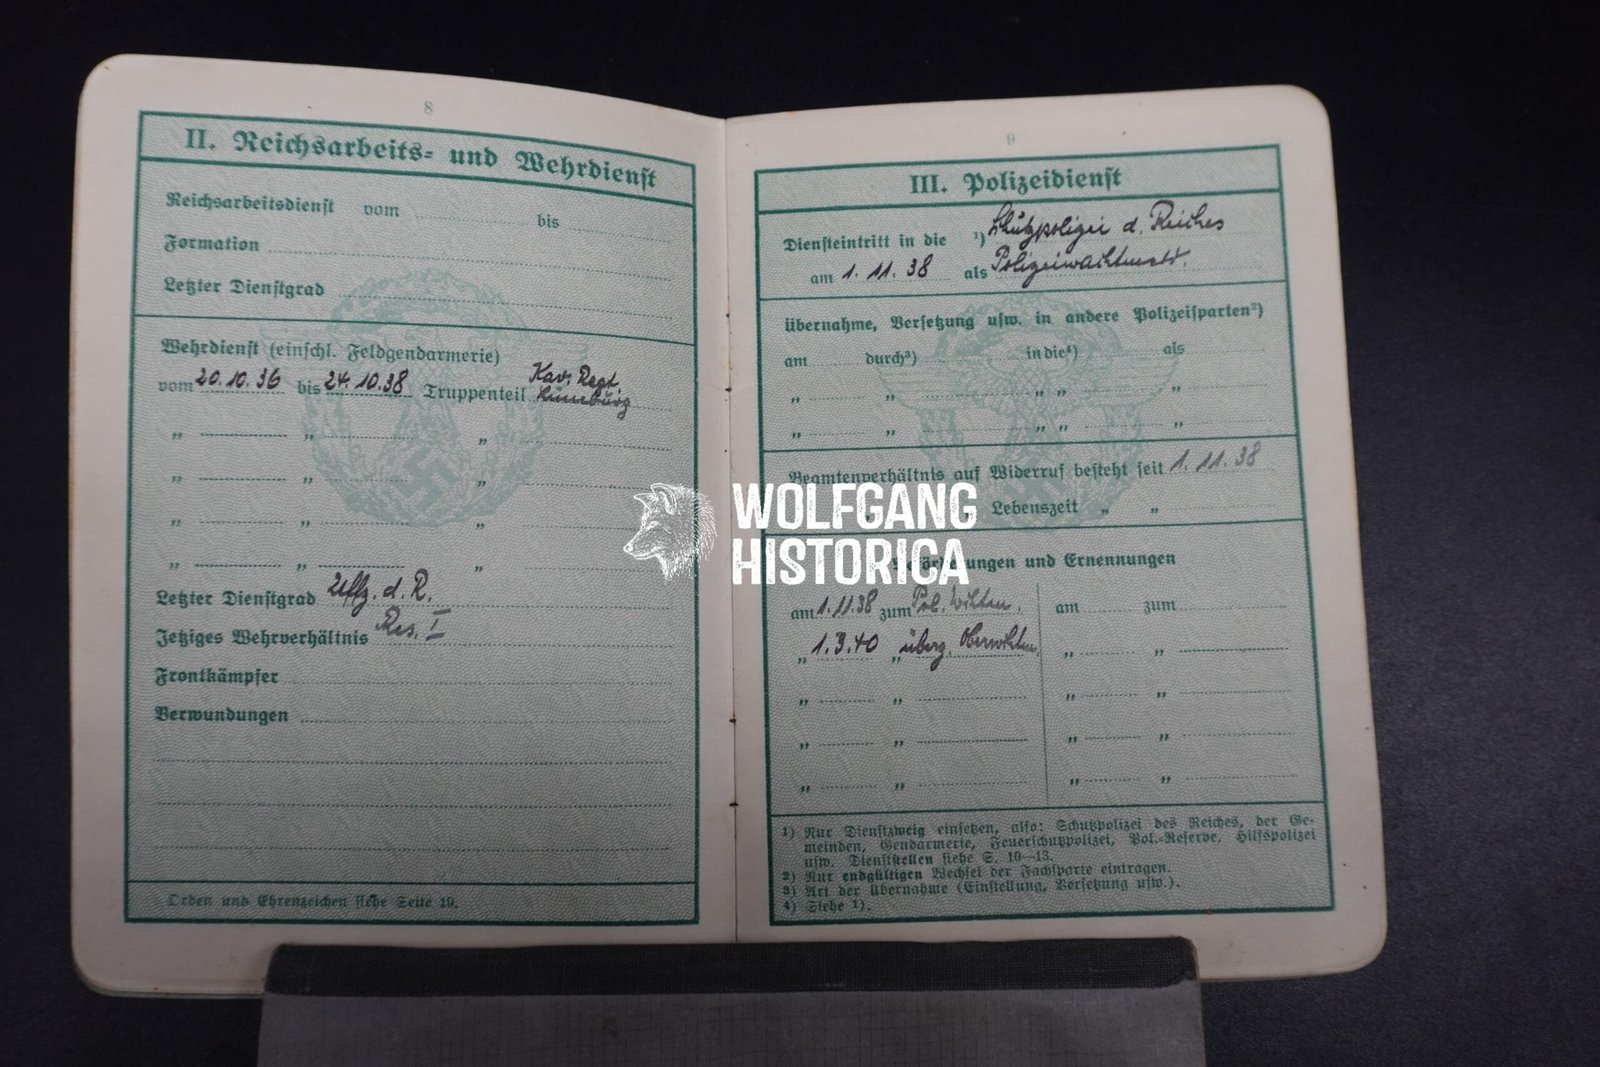 8
II. Reichsarbeits- und Wehrdienst
Reichsarbeitsdienst vom bis
Formation
Letzter Dienstgrad
Wehrdienst (einschl. Feldgendarmerie)
vom 20.10.36 bis 24.10.38 Truppenteil Kav. Regt.
Lüneburg
" " "
" " "
" " "
" " "
Letzter Dienstgrad Uffz. d. R.
Jetziges Wehrverhältnis Res. I
Frontkämpfer
Verwundungen
Orden und Ehrenzeichen siehe Seite 19.
9
III. Polizeidienst
Diensteintritt in die ¹) Schutzpolizei d. Reiches
am 1. 11. 38 als Polizeiwachtmstr.
Übernahme, Versetzung usw. in andere Polizeisparten²)
am durch³) in die⁴) als
" " " " "
" " " " "
Beamtenverhältnis auf Widerruf besteht seit 1. 11. 38
Lebenszeit " "
und Ernennungen
am 1.11.38 zum Pol. Wchtm. am zum
" 1.3.40 " überz. Oberwchtm. " "
" " " "
" " " "
" " " "
¹) Nur Dienstzweig einsetzen, also: Schutzpolizei des Reiches, der Ge-
meinden, Gendarmerie, Feuerschutzpolizei, Pol.-Reserve, Hilfspolizei
usw. Dienststellen siehe S. 10—13.
²) Nur endgültigen Wechsel der Fachsparte eintragen.
³) Art der Übernahme (Einstellung, Versetzung usw.).
⁴) Siehe ¹).
WOLFGANG
HISTORICA